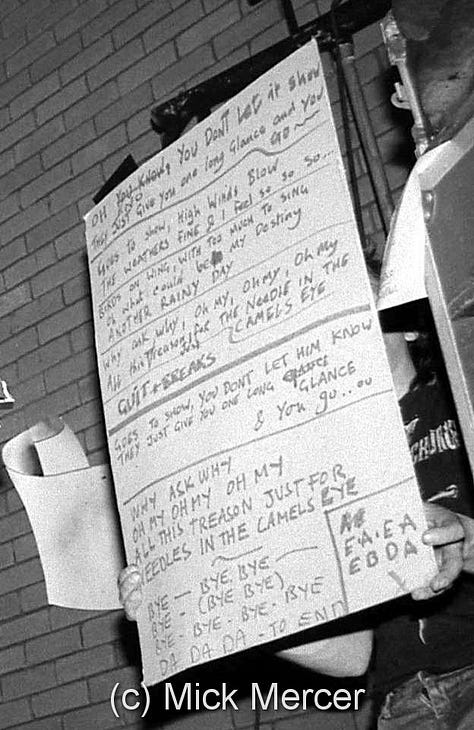 OH YOU KNOW, YOU DONT LET it show
THEY JUST GIVE YOU one long Glance and you
GO ~
GOES TO SHOW, HIGH WINDS BLOW
THE WEATHERS FINE & I feel so so so...
BIRDS ON WING, WITH TOO MUCH TO SING
of what could be my Destiny
ANOTHER RAINY DAY
WHY ask WHY, Oh my, Oh my, Oh my
All this Treason just for THE NEEDLE IN THE
CAMELS EYE
GUIT + BREAKS
GOES TO SHOW, YOU DONT LET HIM KNOW
THEY JUST GIVE YOU ONE LONG GLANCE
& You go..ou
WHY ASK WHY
OH MY OH MY OH MY
ALL THIS TREASON JUST FOR
NEEDLES IN THE CAMELS EYE
BYE - BYE BYE
BYE - (BYE BYE)
BYE - BYE - BYE - BYE
DA DA DA - TO END
EA.EA
EBDA
(c) Mick Mercer